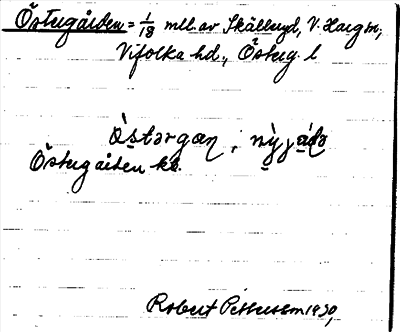 Östergården = 1/18 mtl. av Skålleryd, V. Harg sn,
Vifolka hd., Österg. l
ò̀stərgɑɳ ; nỳjɑ́də
Östergården kb.
Robert Pettersson 1930,